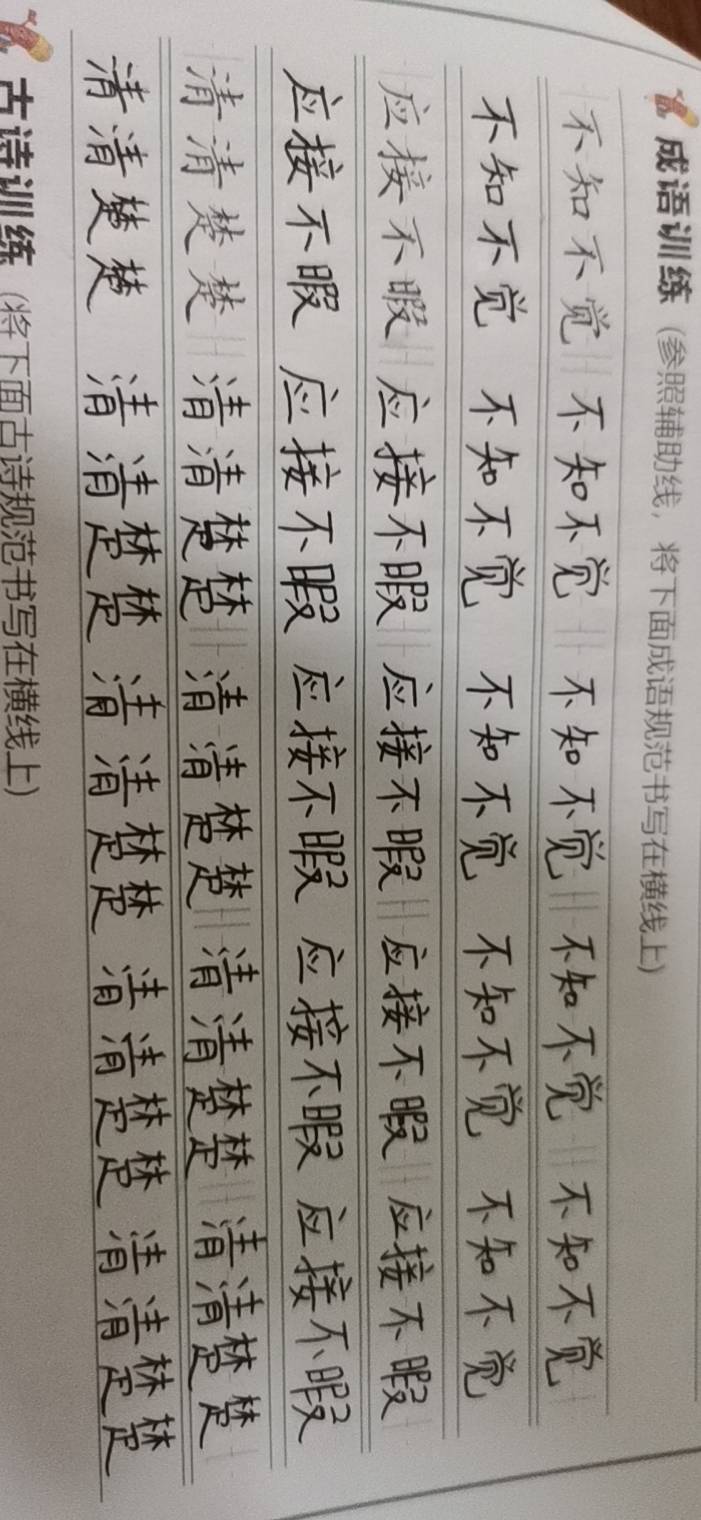 成语训练 (参照辅助线，将下面成语规范书写在横线上)
不知不觉 不知不觉 不知不觉 不知不觉 不知不觉
不知不觉 不知不觉 不知不觉 不知不觉 不知不觉
应接不暇 应接不暇 应接不暇 应接不暇 应接不暇
应接不暇 应接不暇 应接不暇 应接不暇 应接不暇
清清楚楚 清清楚楚 清清楚楚 清清楚楚 清清楚楚
清清楚楚 清清楚楚 清清楚楚 清清楚楚 清清楚楚
古诗训练 (将下面古诗规范书写在横线上)